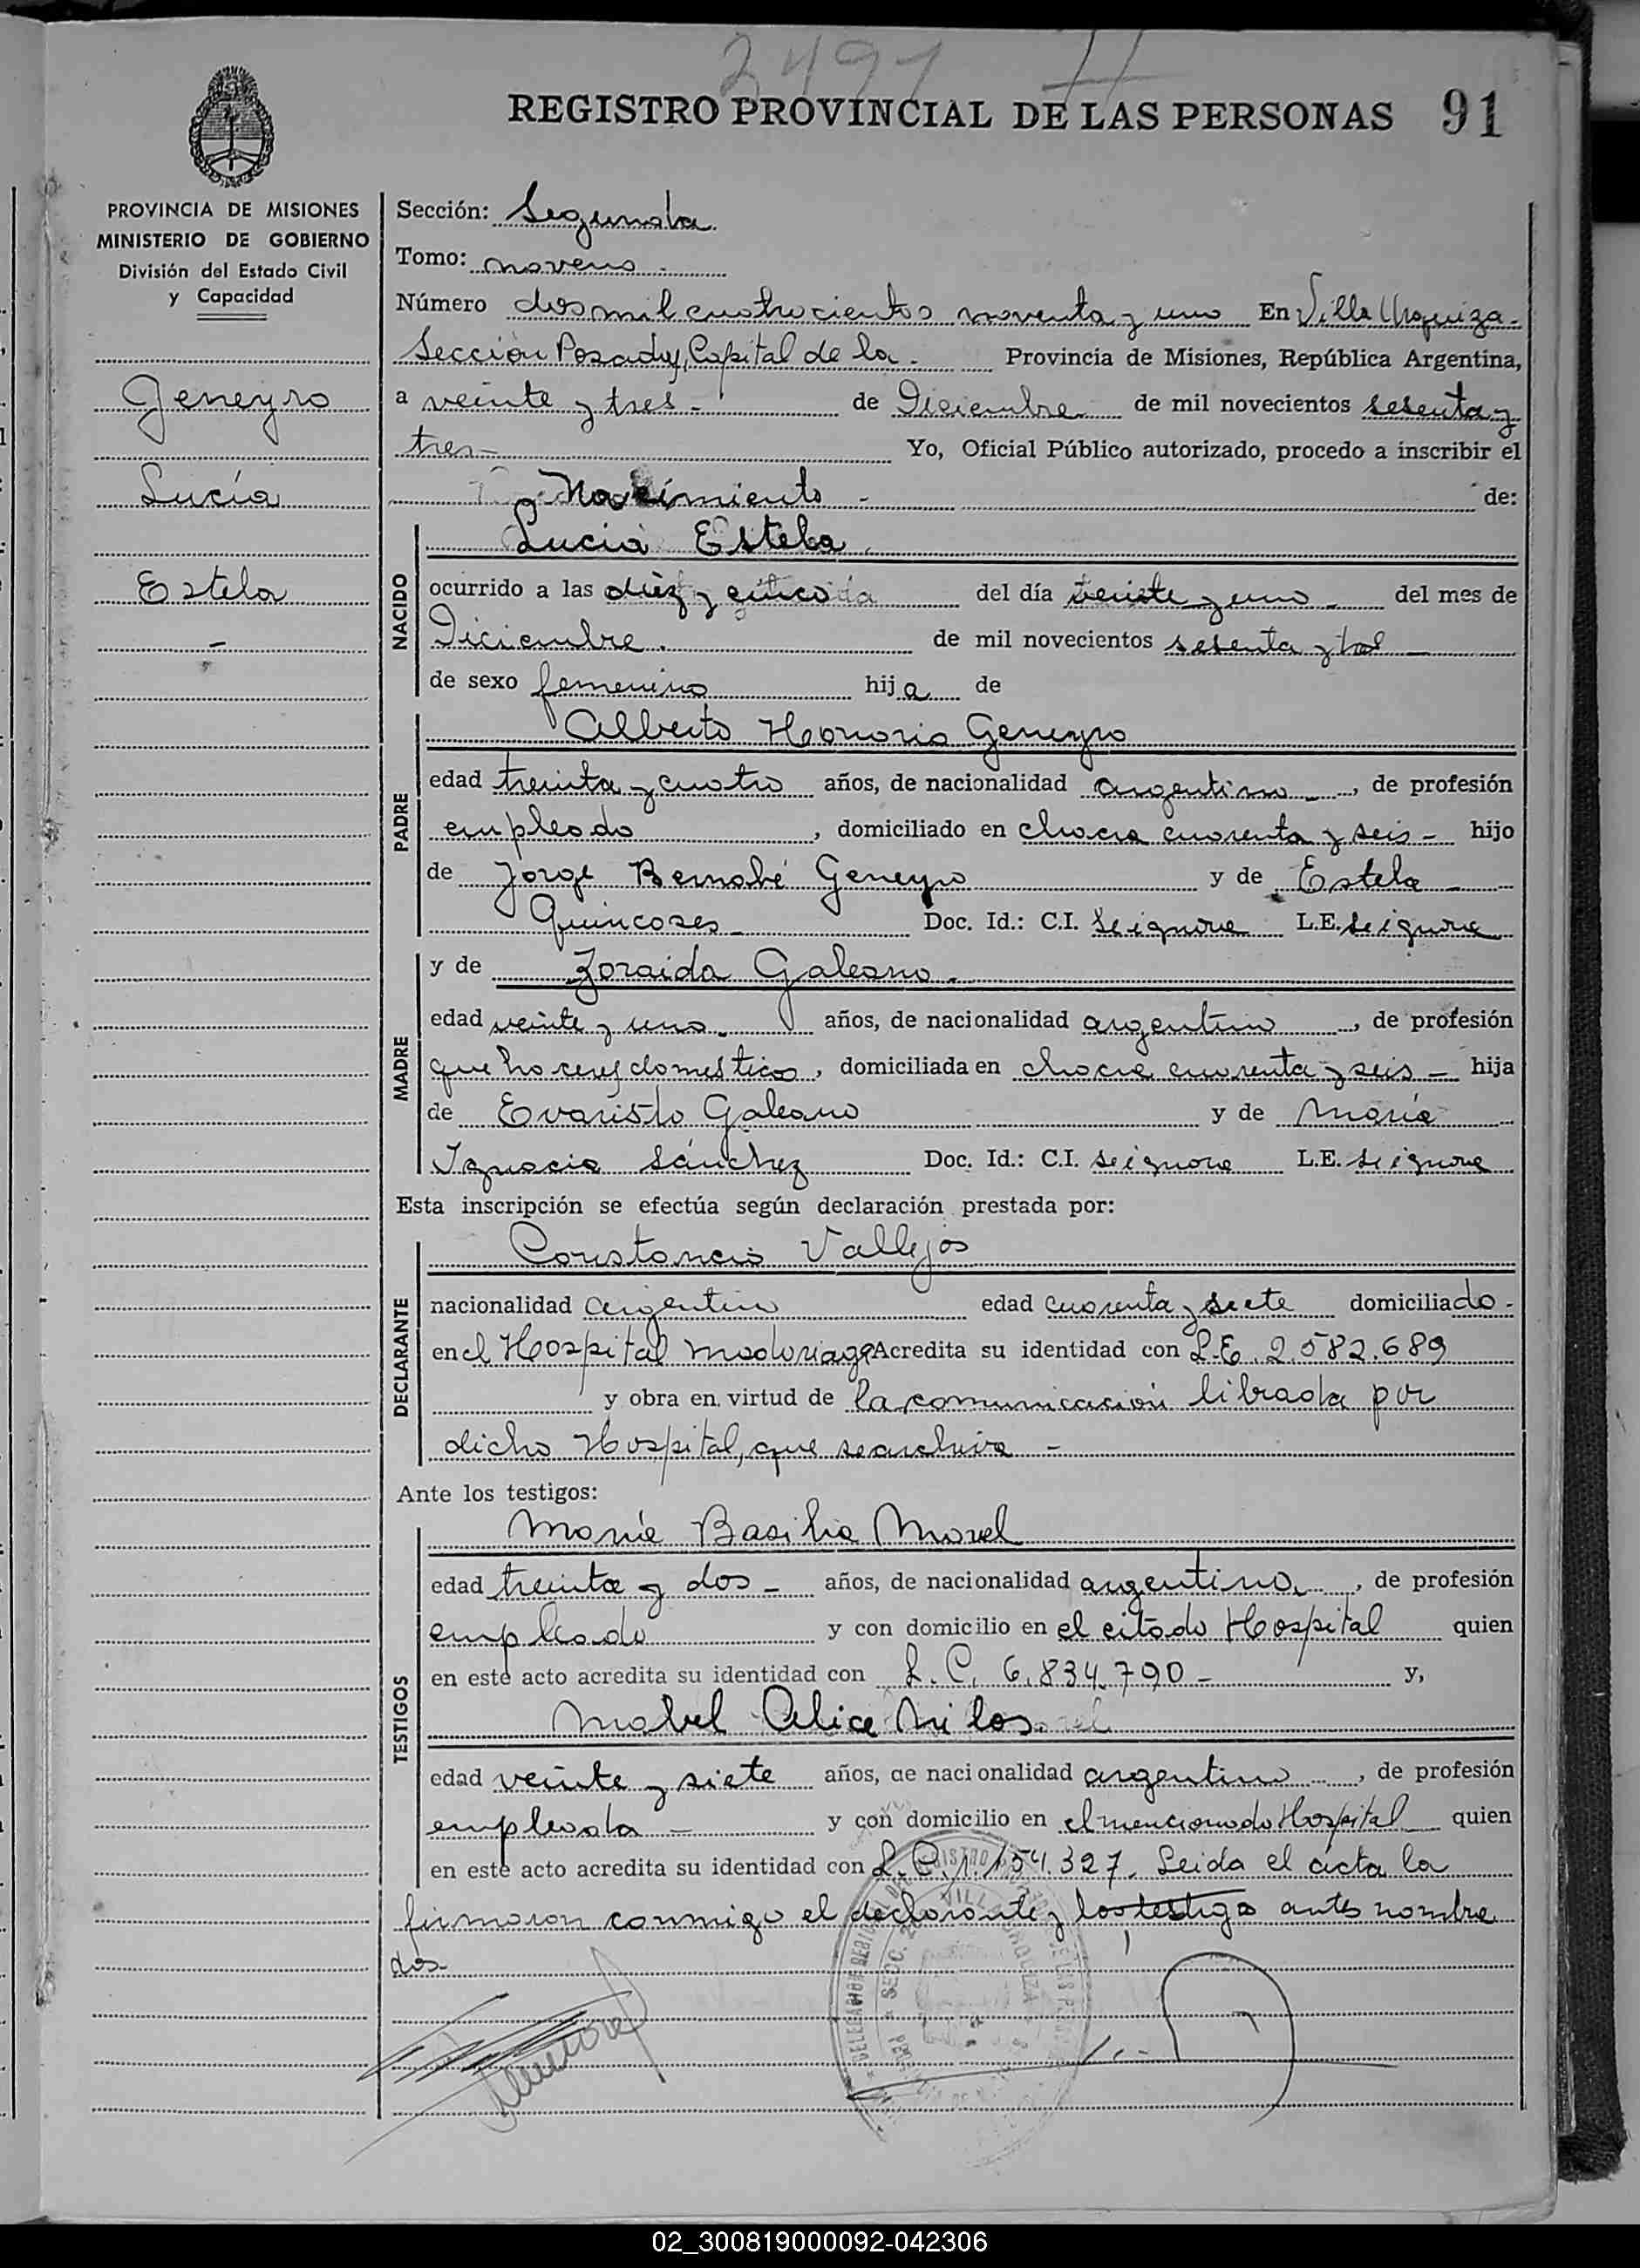 2491
REGISTRO PROVINCIAL DE LAS PERSONAS 91
PROVINCIA DE MISIONES
MINISTERIO DE GOBIERNO
División del Estado Civil
y Capacidad
Geneyro
Lucía
Estela
-
Sección: Segunda
Tomo: noveno -
Número dos mil cuatrocientos noventa y uno En Villa Urquiza -
Sección Posadas, Capital de la - Provincia de Misiones, República Argentina,
a veinte y tres - de Diciembre de mil novecientos sesenta y
tres - Yo, Oficial Público autorizado, procedo a inscribir el
Nacimiento - de:
NACIDO
Lucia Estela
ocurrido a las diez y cinco del día veinte y uno - del mes de
Diciembre. de mil novecientos sesenta y tres
de sexo femenino hija de
PADRE
Alberto Honorio Geneyro
edad treinta y cuatro años, de nacionalidad argentino -, de profesión
empleado, domiciliado en chacra cuarenta y seis - hijo
de Jorge Bernabé Geneyro y de Estela -
Quincoses - Doc. Id.: C.I. se ignora L.E. se ignora
MADRE
y de Zoraida Galeano -
edad veinte y uno - años, de nacionalidad argentina, de profesión
quehaceres domésticos, domiciliada en chacra cuarenta y seis - hija
de Evaristo Galeano y de María
Ignacia Sánchez Doc. Id.: C.I. se ignora L.E. se ignora
Esta inscripción se efectúa según declaración prestada por:
DECLARANTE
Constancio Vallejos
nacionalidad argentino edad cuarenta y siete domiciliado -
en el Hospital Madariaga Acredita su identidad con L.E. 2.582.689
y obra en virtud de la comunicación librada por
dicho Hospital, que se archiva -
Ante los testigos:
TESTIGOS
María Basilia Morel
edad treinta y dos - años, de nacionalidad argentina, de profesión
empleada y con domicilio en el citado Hospital quien
en este acto acredita su identidad con L.C. 6.834.790 - y,
Mabel Alice Milos
edad veinte y siete años, de nacionalidad argentina, de profesión
empleada - y con domicilio en el mencionado Hospital quien
en este acto acredita su identidad con L.C. 1.154.327. Leida el acta la
firmaron conmigo el declarante y los testigos antes nombra
dos -
SECC. 2ª VILLA URQUIZA
02_300819000092-042306